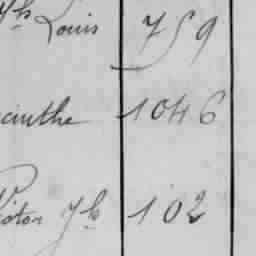 Jh Louis 759
cinthe 1046
Victor Jh 102